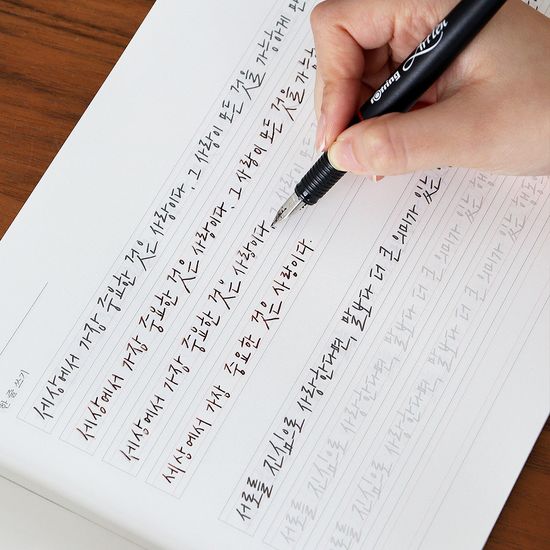 한 줄 쓰기
세상에서 가장 중요한 것은 사랑이다. 그 사랑이 모든 것을 가능하게
세상에서 가장 중요한 것은 사랑이다. 그 사랑이 모든 것을 가능
세상에서 가장 중요한 것은 사랑이다. 그 사랑이 모든
세상에서 가장 중요한 것은 사랑이다.
서로를 진심으로 사랑한다면, 말보다 더 큰 의미가 있는
서로를 진심으로 사랑한다면, 말보다 더 큰 의미가 있는
서로를 진심으로 사랑한다면, 말보다 더 큰 의미가 있는
rotring